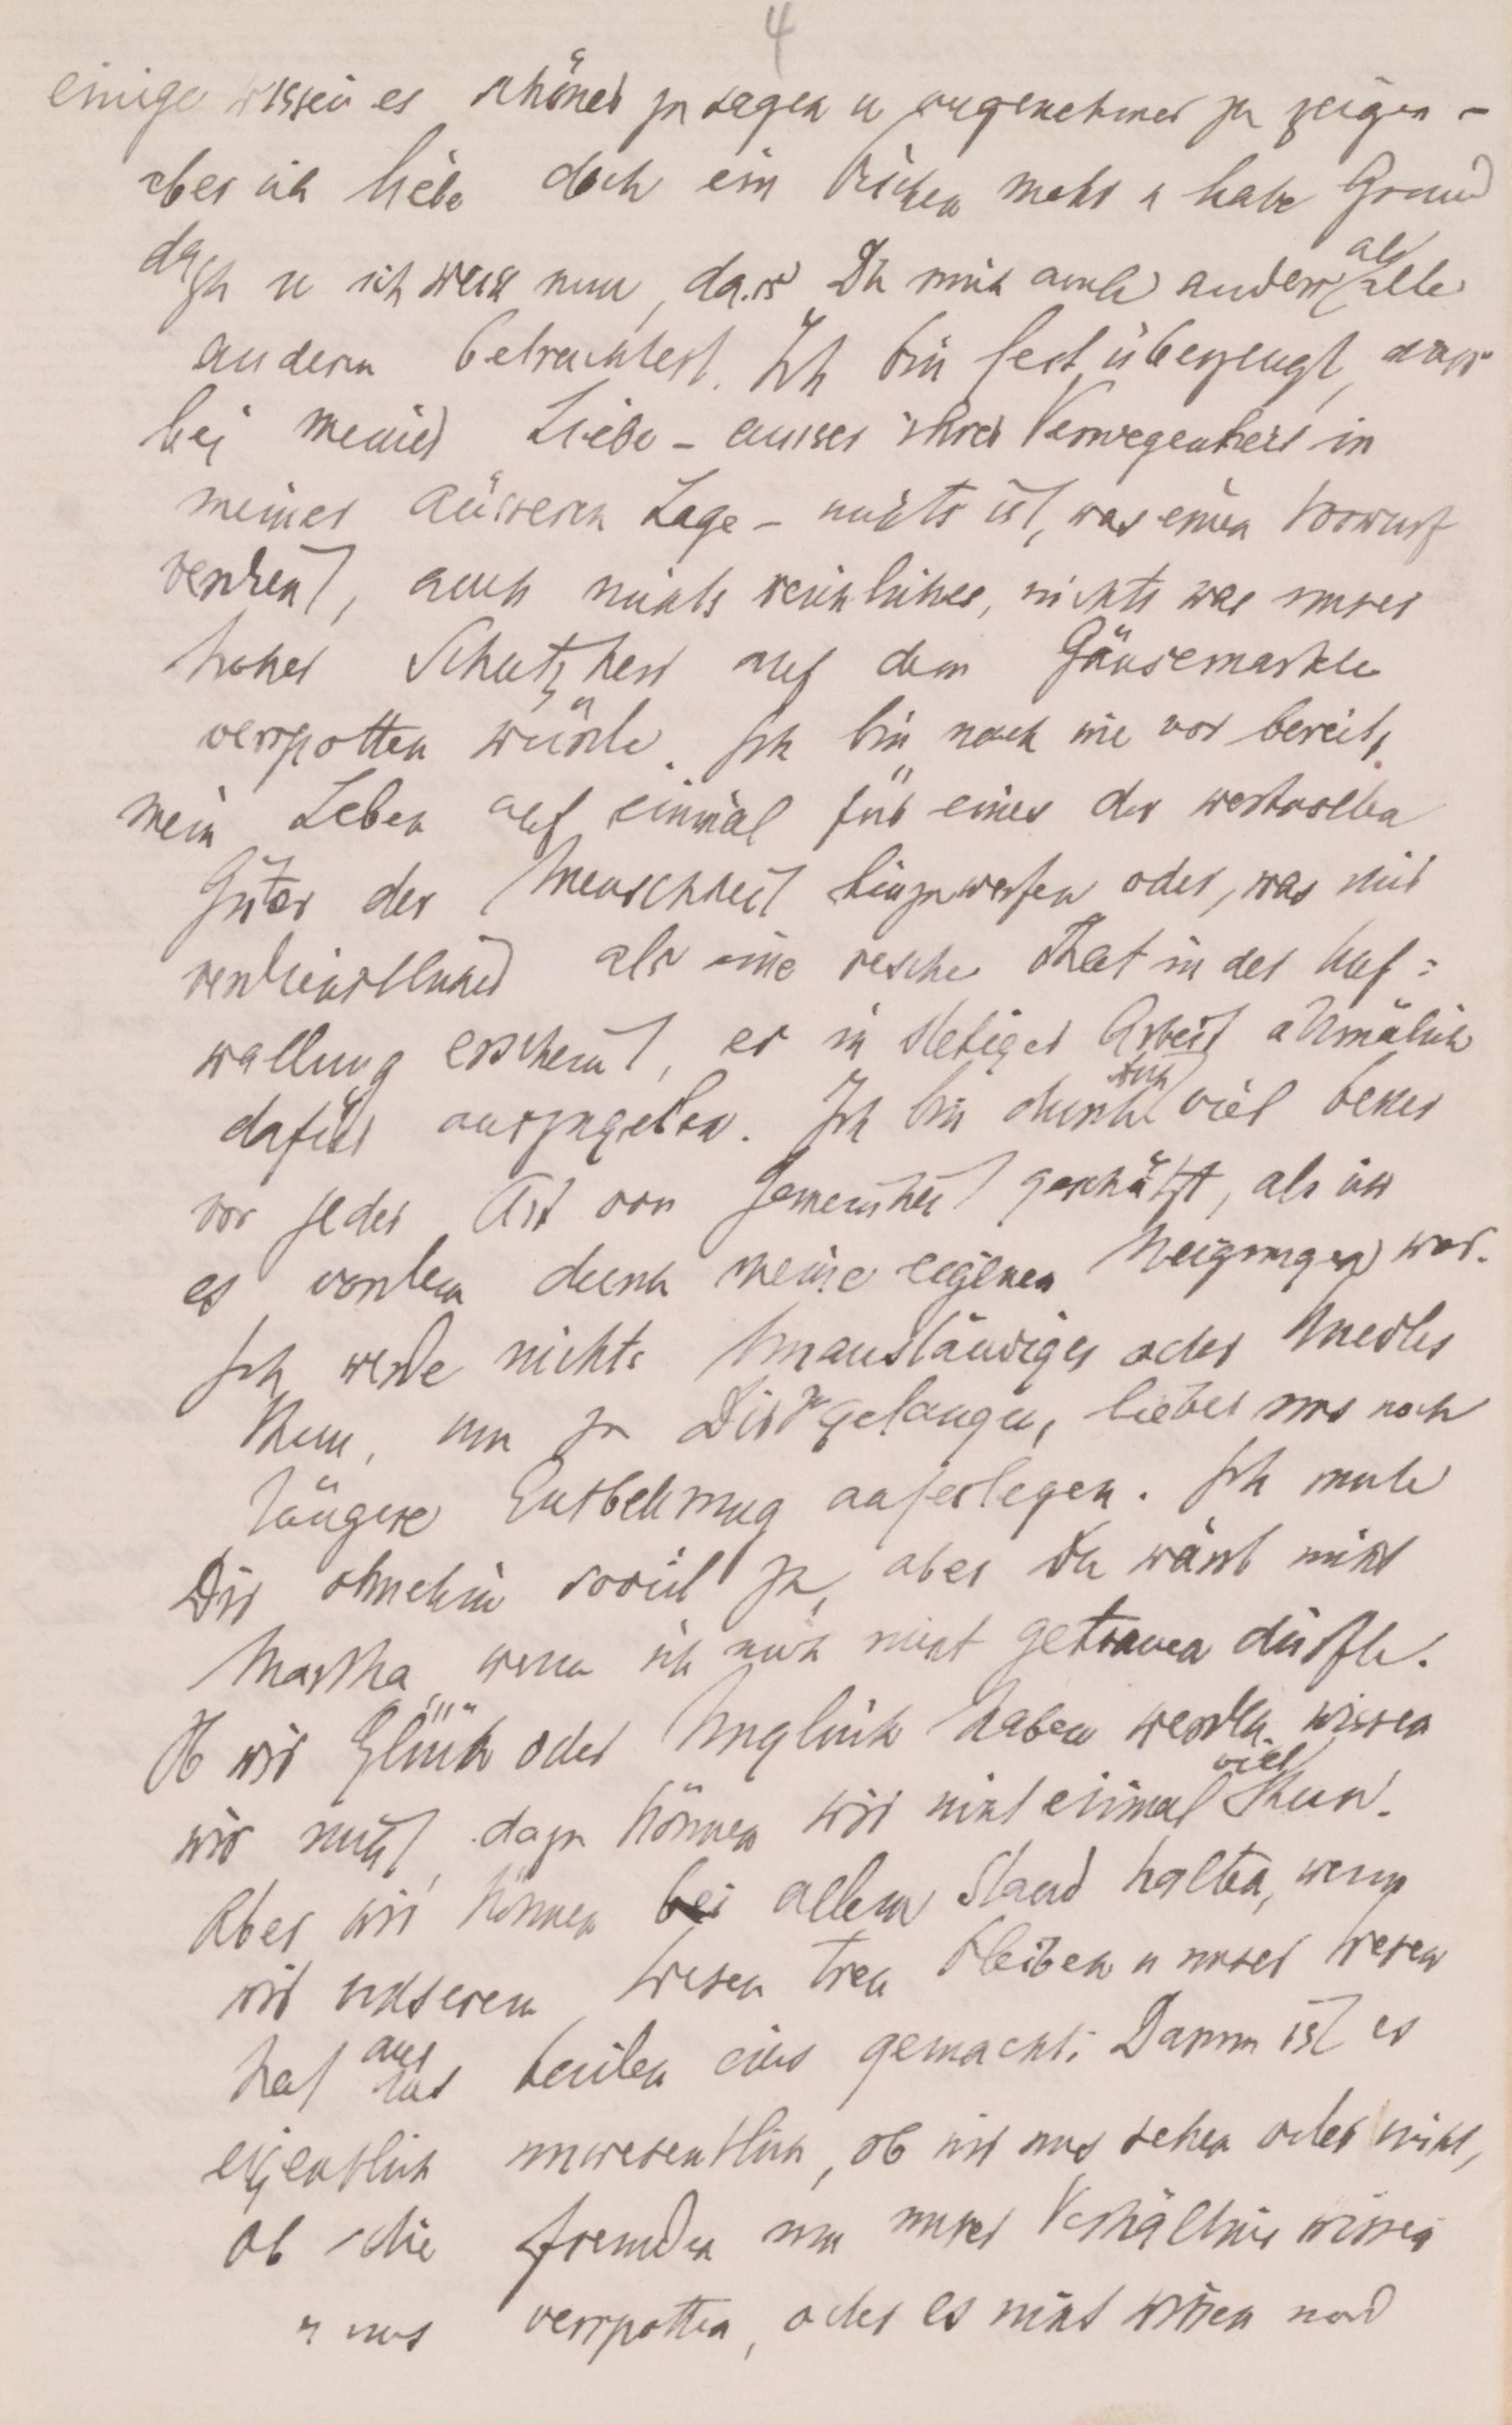 4
einige wissen es schöner zu sagen u angenehmer zu zeigen –
aber ich liebe doch ein bischen mehr u habe Grund
dazu u ich weiss nun, dass Du mich auch anders als alle
andern betrachtest. Ich bin fest überzeugt, dass
bei meiner Liebe – ausser ihrer Verwegenheit in
meiner äusseren Lage – nichts ist, was einen Vorwurf
verdient, auch nichts weichliches, nichts was unser
hoher Schutzherr auf dem Gänsemarkte
verspotten würde. Ich bin nach wie vor bereit,
mein Leben auf einmal für eines der wertvollen
Güter der Menschheit hinzuwerfen oder, was mir
verdienstlicher als eine rasche That in der Auf=
wallung erscheint, es in stetiger Arbeit allmälich
dafür auszugeben. Ich bin durch Dich viel besser
vor jeder Art von Gemeinheit geschützt, als ich
es vordem durch meine eigenen Neigungen war.
Ich werde nichts Unanständiges oder Unedles
thun, um zu Dir zu gelangen, lieber uns noch
längere Entbehrung auferlegen. Ich mute
Dir ohnehin soviel zu, aber Du wärst nicht
Martha, wenn ich mich nicht getrauen dürfte.
Ob wir Glück oder Unglück haben werden, wissen
wir nicht, dazu können wir nicht einmal viel thun.
Aber wir können bei allem Stand halten, wenn
wir unserem Wesen treu bleiben u unser Wesen
hat aus uns beiden eins gemacht. Darum ist es
eigentlich unwesentlich, ob wir uns sehen oder nicht,
ob die Fremden um unser Verhältnis wissen
u uns verspotten, oder es nicht wissen und